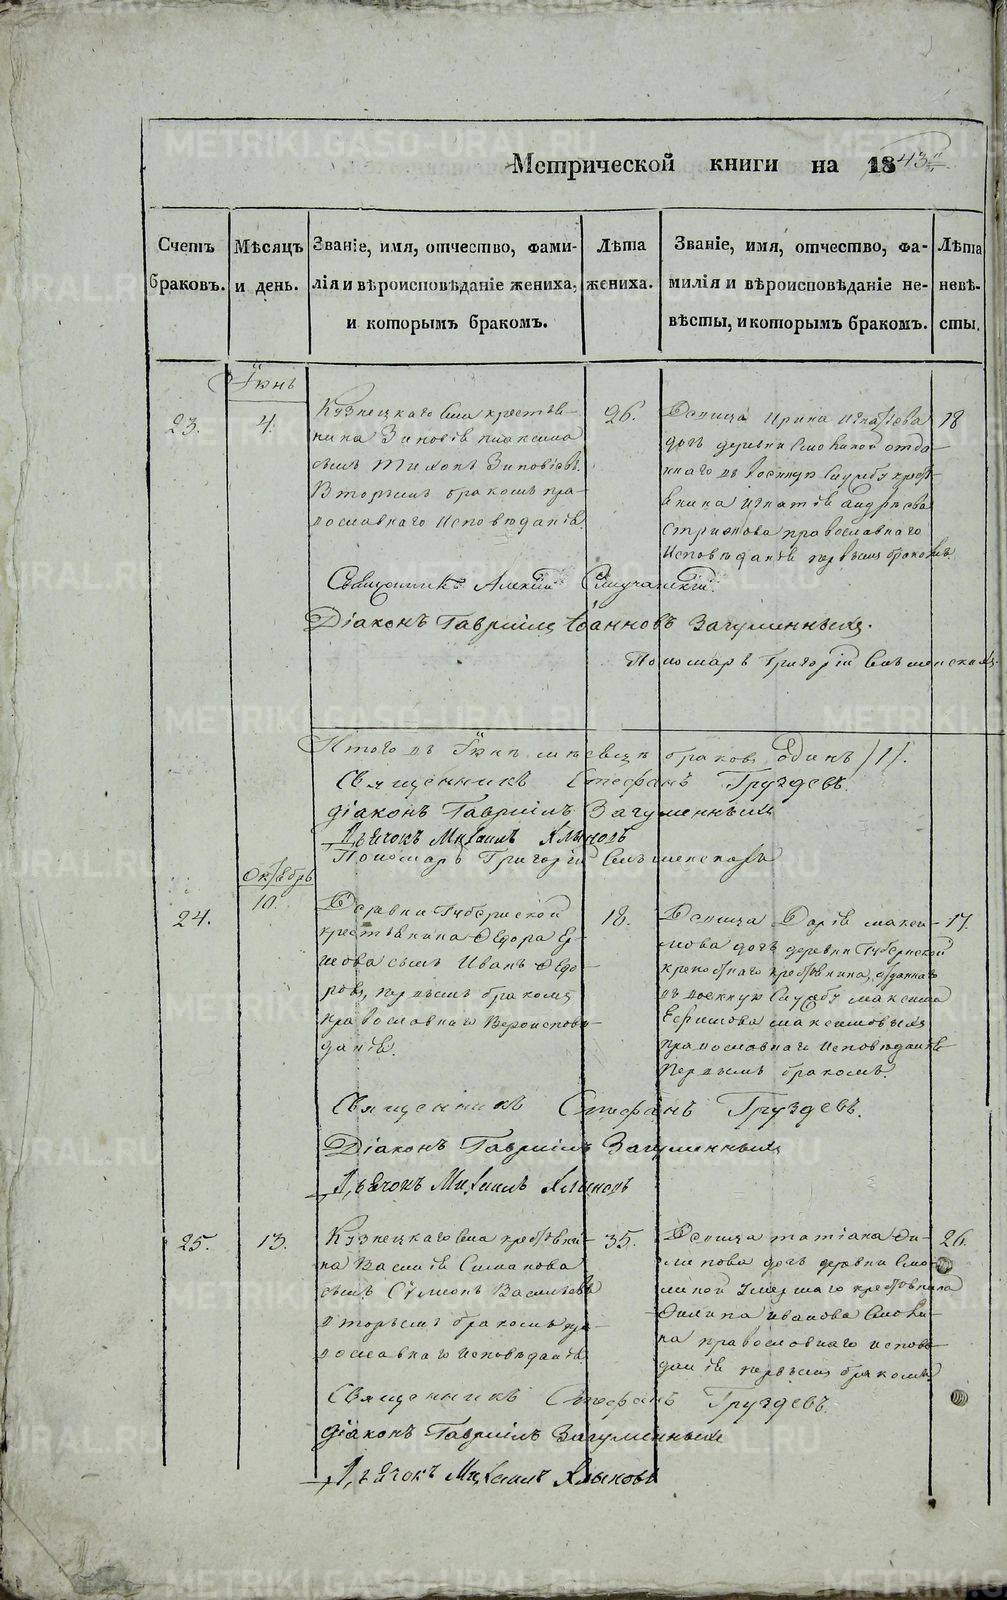 Метрической книги на 1843й
Счетъ браковъ.
Мѣсяцъ и день.
Званіе, имя, отчество, фами-
лія и вѣроисповѣданіе жениха,
и которымъ бракомъ.
Лѣта жениха.
Званіе, имя, отчество, фа-
милія и вѣроисповѣданіе не-
вѣсты, и которымъ бракомъ.
Лѣта невѣ-
сты.
Іюнь
23.
4.
Кузнецкаго села крестья-
нина Зиновія
сынъ Тихонъ Зиновіевъ
Вторымъ бракомъ пра-
вославнаго Исповѣданія
26.
Дѣвица Ирина Игнатіева
дочь деревни Смолиной отда-
ннаго въ военную Службу крест
янина Игнатія Андреева
православнаго
Исповѣданія первымъ бракомъ.
18
Священникъ Алексій
Діаконъ Гавріилъ Іоанновъ Загуменныхъ.
Пономарь Григорій
Итого въ Іюнѣ мѣсяцѣ браковъ Одинъ /1/.
Священникъ Стефанъ Груздевъ.
діаконъ Гавріилъ Загуменныхъ
Дьячокъ Михаилъ Хлыновъ
Пономарь Григорій
Октябрь
24.
10.
Деревни Губернской
крестьянина Ѳедора Ер-
мова сынъ Иванъ Ѳедо-
ровъ, первымъ бракомъ
православнаго Вѣроисповѣ-
данія.
18.
Дѣвица Дарія Макси-
мова дочь деревни Губернской
крепостнаго крестьянина, отданнаго
въ военную Службу Максима
Ефимова Максимовыхъ
православнаго Исповѣданія
Первымъ бракомъ.
17.
Священникъ Стефанъ Груздевъ.
Діаконъ Гавріилъ Загуменныхъ
Дьячокъ Михаилъ Хлыновъ
25.
13.
Кузнецкаго села крестьяни-
на Василія Симанова
сынъ Сѵмеонъ Васильевъ
вторымъ бракомъ пра-
вославнаго исповѣданія
35.
Дѣвица Татіана Фи-
липова дочь деревни Смо-
линой Умершаго крестьянина
Филипа Иванова Смоли-
на православнаго исповѣ-
данія первымъ бракомъ
26.
Священникъ Стефанъ Груздевъ.
діаконъ Гавріилъ Загуменныхъ
Дьячокъ Михаилъ Хлыновъ
METRIKI.GASO-URAL.RU